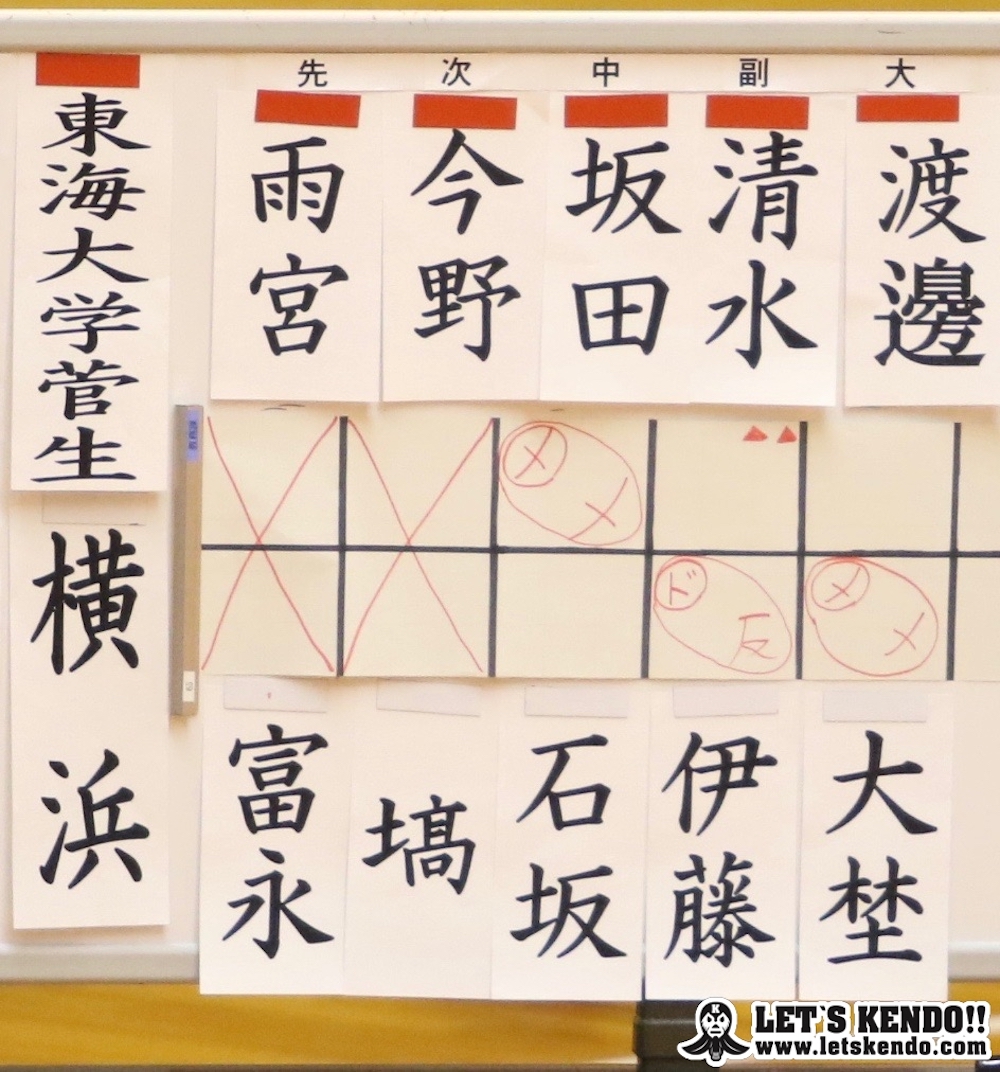 先 次 中 副 大
東海大学菅生
雨宮 今野 坂田 清水 渡邊
メ メ ▲▲
ド 反 メ メ
横浜
富永 塙 石坂 伊藤 大埜
LET'S KENDO!!
www.letskendo.com